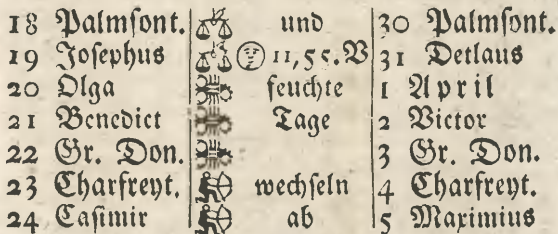 18 Palmſont. und 30 Palmſont.
19 Joſephus 11,55.V 31 Detlaus
20 Olga feuchte 1 April
21 Benedict Tage 2 Victor
22 Gr. Don. 3 Gr. Don.
23 Charfreyt. wechſeln 4 Charfreyt.
24 Caſimir ab 5 Maximius